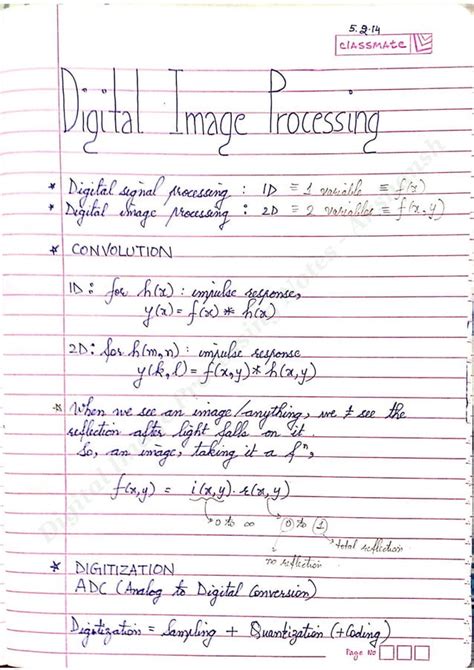 5.2.14
classmate
Digital Image Processing
* Digital signal processing : 1D ≡ 1 variable ≡ f(x)
* Digital image processing : 2D ≡ 2 variables ≡ f(x,y)
* CONVOLUTION
1D: for h(x) : impulse response,
y(x) = f(x) * h(x)
2D: for h(m,n) : impulse response
y(k,l) = f(x,y) * h(x,y)
* When we see an image/anything, we see the
reflection after light falls on it.
So, an image, taking it a fⁿ,
f(x,y) = i(x,y) . r(x,y)
0 to ∞ 0 to 1
total reflection
no reflection
* DIGITIZATION
ADC (Analog to Digital Conversion)
Digitization = Sampling + Quantization (+Coding)
Page No